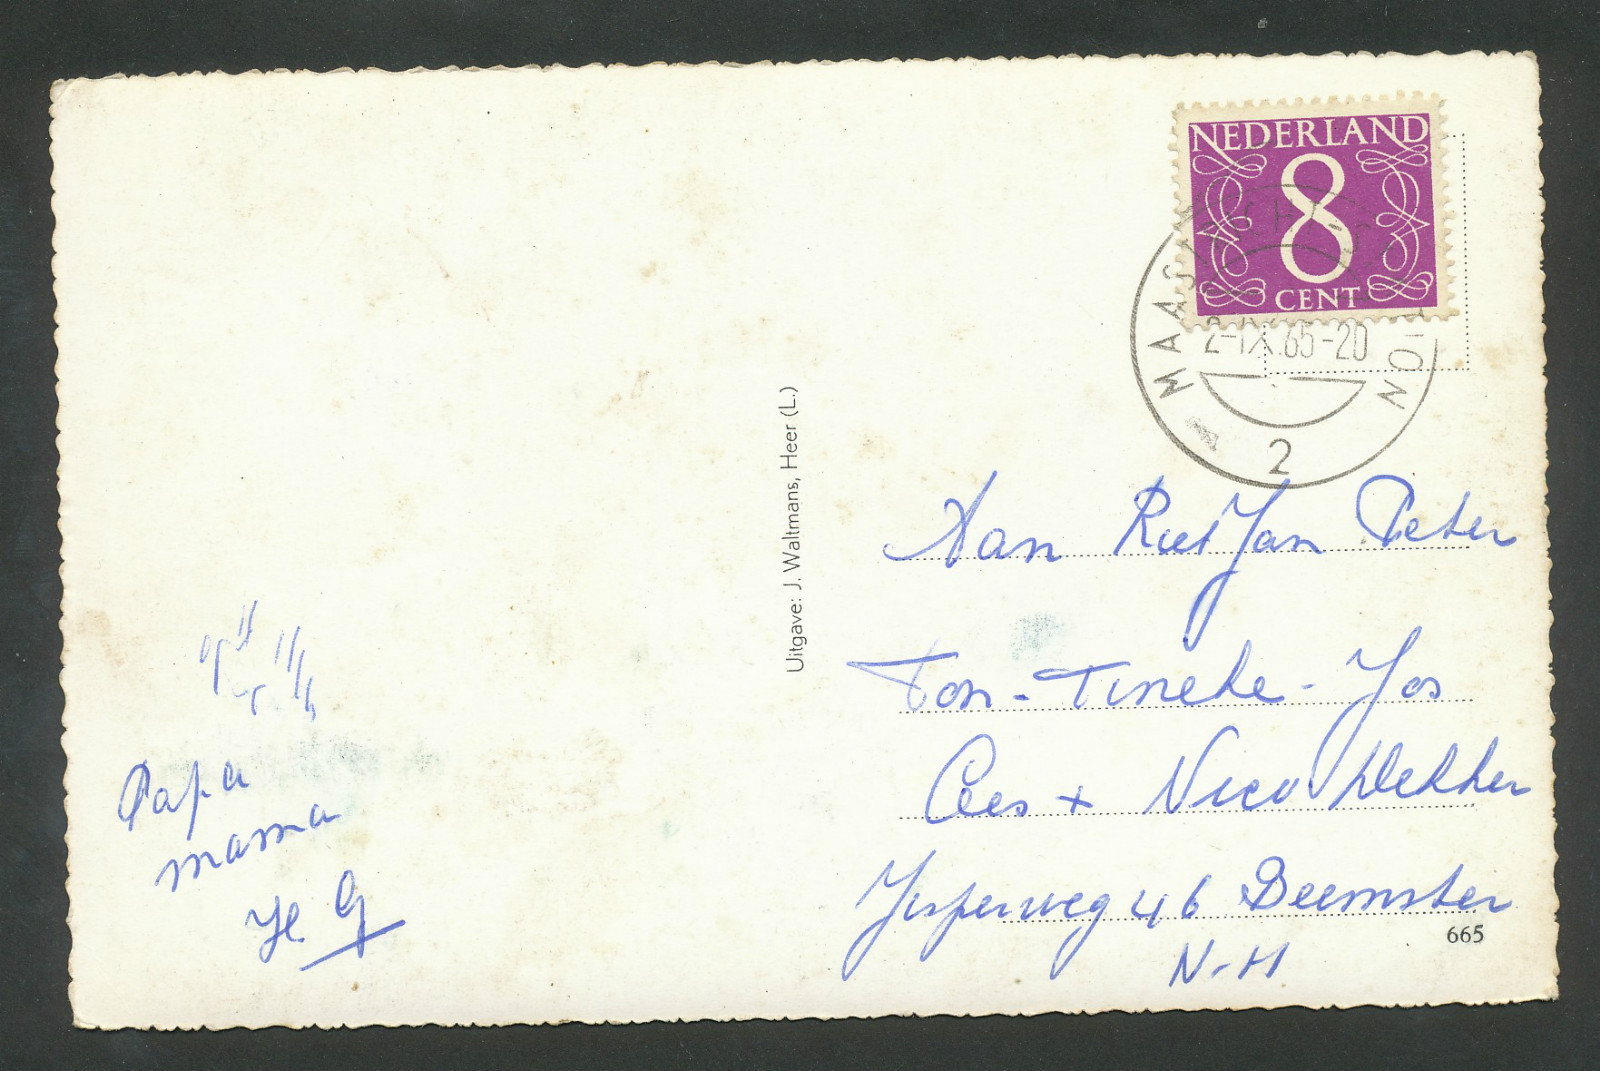 NEDERLAND
8
CENT
2-IX.65-20
2
Uitgave: J. Waltmans, Heer (L.)
Aan Riet Jan Peter
Ton - Tineke - Jos
Cees + Nico Dekker
Jisperweg 46 Beemster
N-H
665
Papa
mama
G